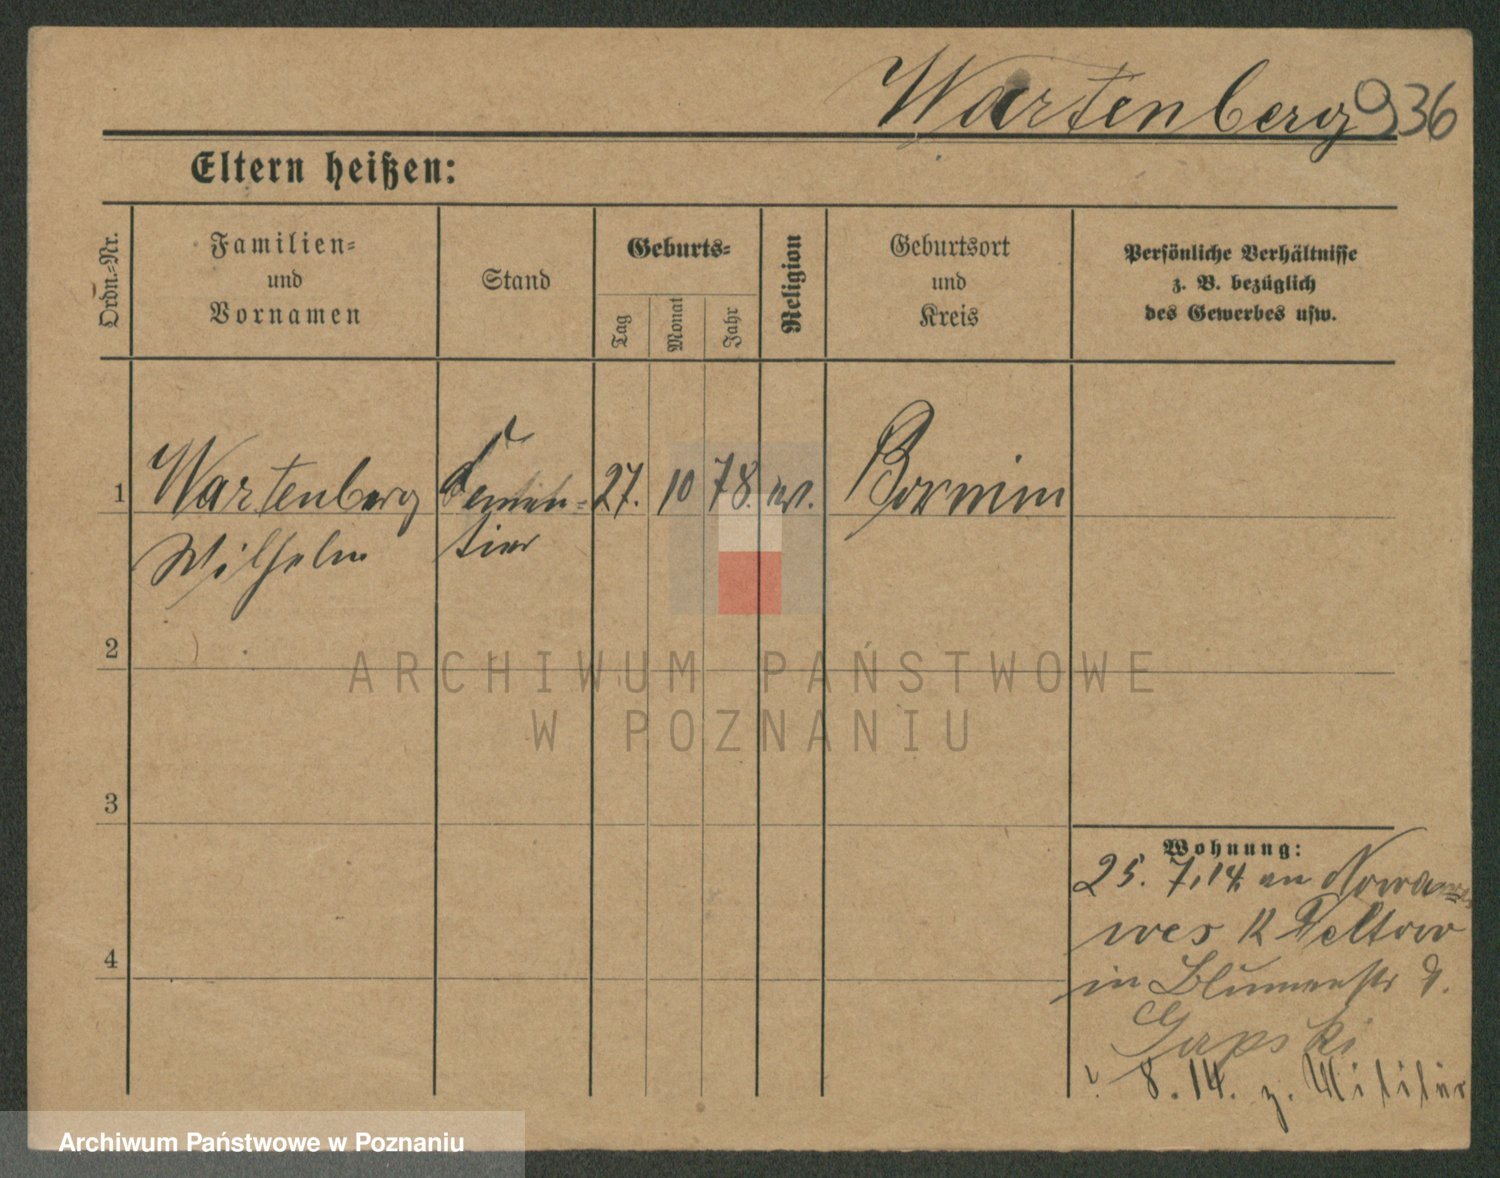 Wartenberg 936
Eltern heißen:
Ordn.-Nr.
Familien-
und
Vornamen
Stand
Geburts-
Tag
Monat
Jahr
Religion
Geburtsort
und
Kreis
Persönliche Verhältnisse
z. B. bezüglich
des Gewerbes usw.
1 Wartenberg 27. 10 78. ev. Bornim
Wilhelm tier
2
3
4
Wohnung:
25. 7.14. Nowa-
wes K Teltow
in Blumenstr 8.
Gapski
8.14. z. Militär
ARCHIWUM PAŃSTWOWE
W POZNANIU
Archiwum Państwowe w Poznaniu